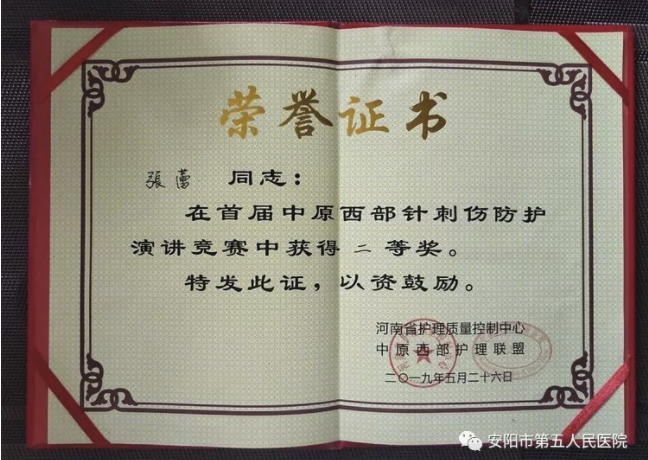 荣誉证书
張蕾 同志：
在首届中原西部针刺伤防护
演讲竞赛中获得 二 等奖。
特发此证，以资鼓励。
河南省护理质量控制中心
中原西部护理联盟
二〇一九年五月二十六日
安阳市第五人民医院